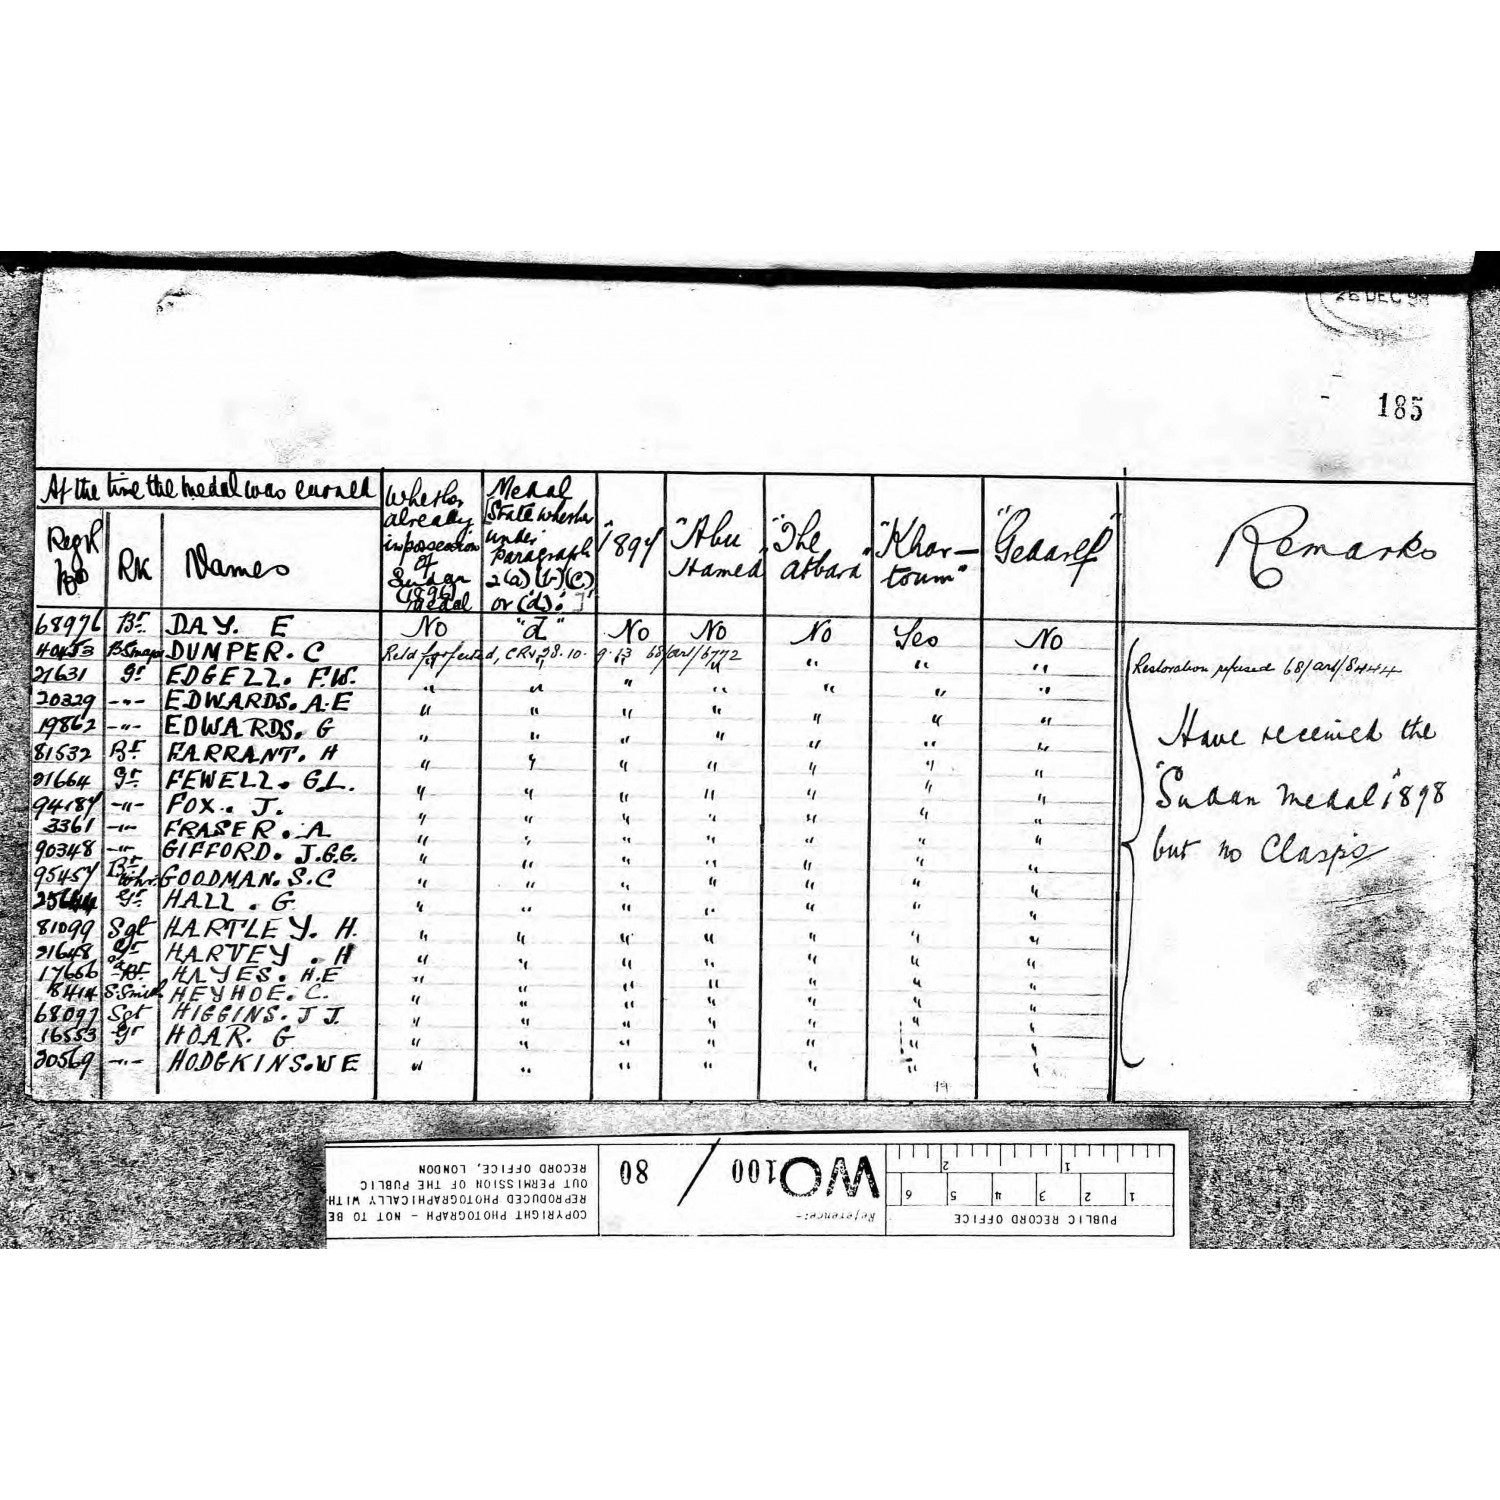 26 DEC 98
185
At the time the medal was earned
Regtl Nos
Rk
Names
Whether already in possession of Sudan (1896) medal
Medal [State whether under paragraph 2(a) (b) (c) or (d).]
"1897
"Abu Hamed"
"The Atbara"
"Khar-toum"
"Gedaref"
Remarks
68976 Br. DAY. E No "d" No No No Yes No
40453 B.S.major DUMPER. C forfeited, 28.10. 68/art/6772 Restoration refused 68/art/8444
21631 Gr EDGELL. F.W. " " " " " " "
20329 -"- EDWARDS. A.E " " " " " " "
19862 -"- EDWARDS. G " " " " " " "
81532 Br. FARRANT. H " " " " " " "
21664 Gr FEWELL. G.L. " " " " " " "
94187 -"- FOX. J. " " " " " " "
3361 -"- FRASER. A " " " " " " "
90348 -"- GIFFORD. J.G.G. " " " " " " "
95457 Br GOODMAN. S.C " " " " " " "
Gr HALL. G " " " " " " "
81099 Sgt HARTLEY. H. " " " " " " "
21648 Gr HARVEY. H " " " " " " "
17666 HAYES. H.E " " " " " " "
8414 S.Smith HEYHOE. C. " " " " " " "
68097 Sgt HIGGINS. J J. " " " " " " "
16553 Gr HOAR. G " " " " " " "
20569 -"- HODGKINS. W E " " " " " " "
Have received the
"Sudan Medal" 1898
but no Clasps
PUBLIC RECORD OFFICE
1 2 3 4 5 6
1 2
Reference:-
WO 100 / 80
COPYRIGHT PHOTOGRAPH - NOT TO BE
REPRODUCED PHOTOGRAPHICALLY WITH
OUT PERMISSION OF THE PUBLIC
RECORD OFFICE, LONDON